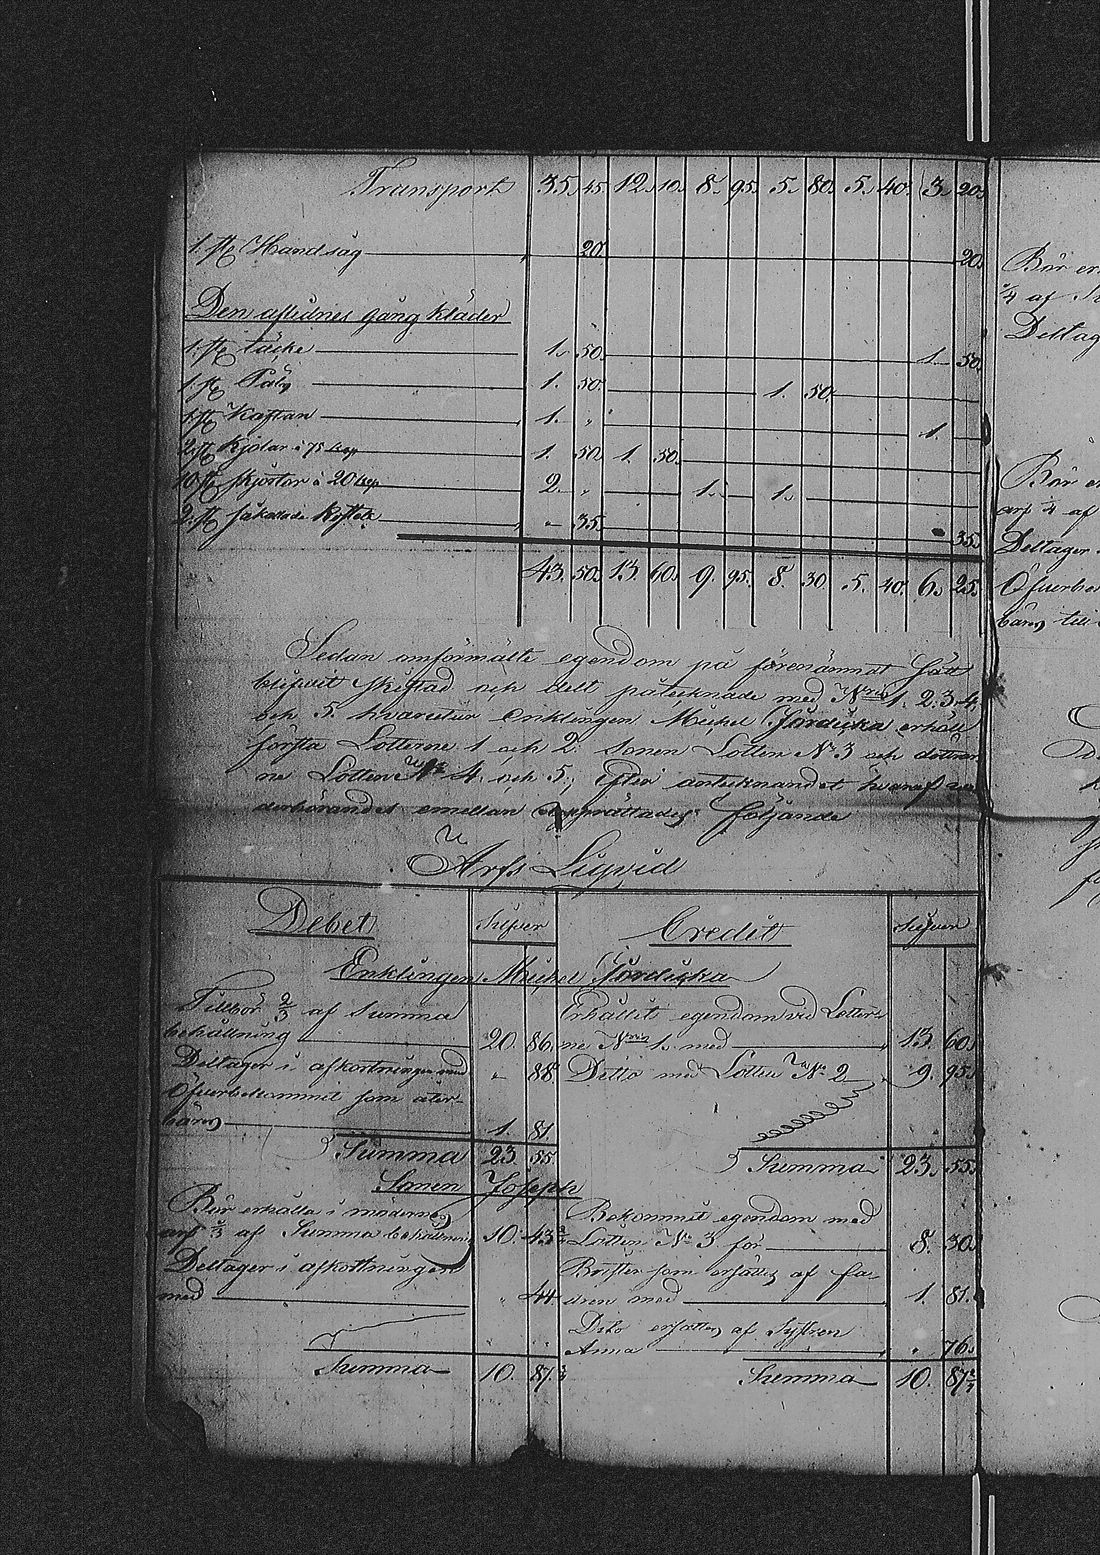 Transport 35. 45. 12. 10. 8. 95. 5. 80. 5. 40. 3. 20.
1. st. Handsåg 20. 20.
Den aflidnes gång kläder
1. st. täcke 1. 50. 1. 50.
1. st. Päls 1. 50. 1. 50.
1. st. Kaftan 1. „ 1.
2. st. Kjolar à 75 kop 1. 50. 1. 50.
10. st. skjortor à 20 kop 2. „ 1. 1.
2. st. så kallade 35. 35.
43. 50. 13. 60. 9. 95. 8. 30. 5. 40. 6. 25.
Sedan omförmälte egendom på förenämnt sätt
blifvit skiftad och delt påtecknade med Nris 1. 2. 3. 4.
och 5. hvarefter Enklingen Michel erhöll
första Lotterne 1 och 2. Sonen Lotten No 3 och dottrar-
ne Lotten No 4. och 5; efter antecknandet hvaraf
emellan upprättades följande
Arfs Liqvid
Debet Silfver Credit Silfver
Enklingen Michel
Tillhör 2/3 af Summa
behållning 20. 86.
Deltager i afkortningen med „ 88.
Öfverbekommit som åter-
bäres 1. 81.
Summa 23. 55
Erhållit egendom vid Lotter-
ne Nris 1. med 13. 60.
Ditto med Lotten No 2 9. 95.
Summa 23. 55.
Sonen Joseph
Bör erhålla i möderne
arf af Summa behållning 10. 43
Deltager i afkortningen
med „ 44.
Summa 10. 87
Bekommit egendom med
Lotten No 3 för 8. 30.
Brister som ersättes af fa-
dren med 1. 81.
Dito ersättes af Systren
Anna „ 76.
Summa 10. 87
Bör er
1/4 af
Deltag
Bör er
arf 1/4 af
Deltager
Öfverbe
bäres till